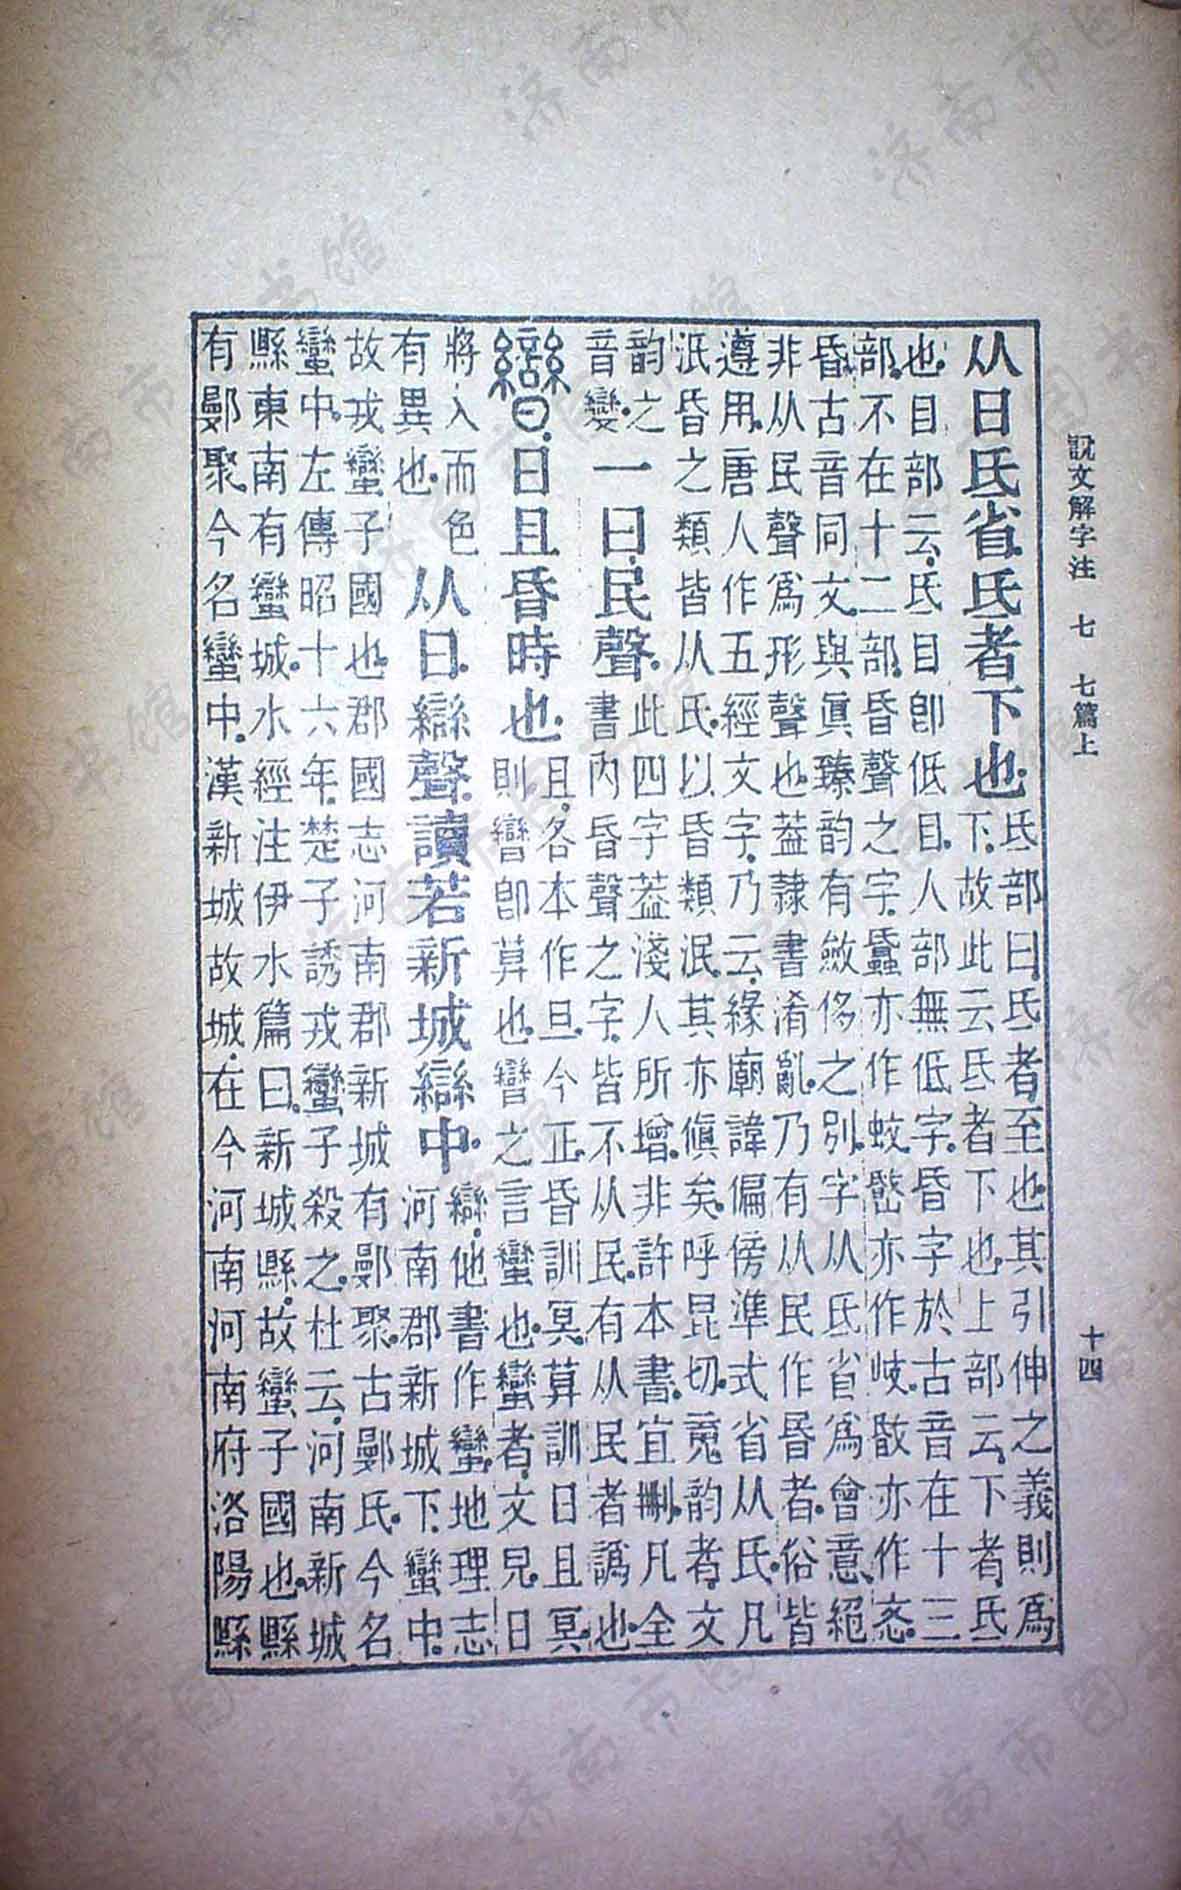 說文解字注 七 七篇上 十四
从日氐省氐者下也
氐部曰氐者至也其引伸之義則爲
下故此云氐者下也上部云下者氐
也目部云氐目卽低目人部無低字昏字於古音在十三
部不在十二部昏聲之字蟁亦作蚊亦作岐敯亦作忞
昏古音同文與眞臻韵有斂侈之別字从氐省爲會意絕
非从民聲爲形聲也葢隸書淆亂乃有从民作昬者俗皆
遵用唐人作五經文字乃云緣廟諱偏傍準式省从氏凡
泯昏之類皆从氏以昏類泯其亦傎矣呼昆切䰟韵者文
韵之
音變
一曰民聲
此四字葢淺人所增非許本書宜刪凡全
書內昏聲之字皆不从民有从民者譌也
曫日且昏時也
且各本作旦今正昏訓冥莫訓日且冥
則曫卽莫也曫之言蠻也蠻者文皃日
將入而色
有異也
从日䜌聲讀若新城䜌中
䜌他書作蠻地理志
河南郡新城下蠻中
故戎蠻子國也郡國志河南郡新城有鄤聚古鄤氏今名
蠻中左傳昭十六年楚子誘戎蠻子殺之杜云河南新城
縣東南有蠻城水經注伊水篇曰新城縣故蠻子國也縣
有鄤聚今名蠻中漢新城故城在今河南河南府洛陽縣